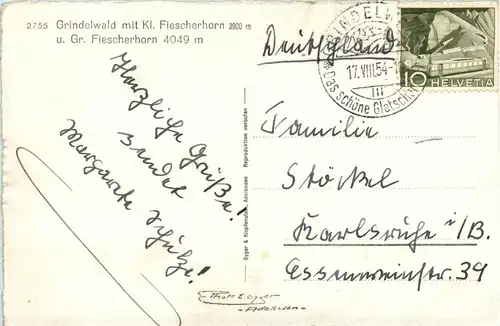 2755 Grindelwald mit Kl. Fiescherhorn 3900 m
u. Gr. Fiescherhorn 4049 m
Deutschland
17.VIII.54
Das schöne Gletscher
10 HELVETIA
Herzliche Grüße!
sendet
Margarete Schulze!
Gyger & Klopfenstein, Adelboden Reproduktion verboten
Familie
Stöckel
Karlsruhe i/B.
Essenweinstr. 39
Phot. E. Gyger
Adelboden